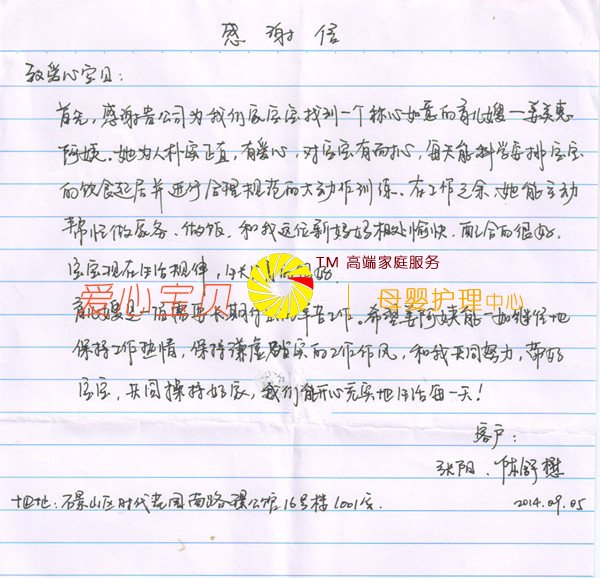 感谢信
致爱心宝贝：
首先，感谢贵公司为我们家宝宝找到一个称心如意的育儿嫂—姜美惠
阿姨。她为人朴实正直，有爱心，对宝宝有耐心，每天能科学安排宝宝
的饮食起居并进行合理规范的大动作训练。在工作之余，她能主动
帮忙做家务、做饭，和我这位新妈妈相处愉快，配合的很好。
宝宝现在生活规律，
TM 高端家庭服务
爱心宝贝 母婴护理中心
育儿嫂是一份需要长期付出的辛苦工作。希望姜阿姨能一如继往地
保持工作热情，保持谦虚踏实的工作作风，和我共同努力，带好
宝宝，共同操持好家，我们能开心充实地生活每一天！
客户：
张阳、陈舒
地址：石景山区时代花园南路璟公馆16号楼1001室.
2014.09.05